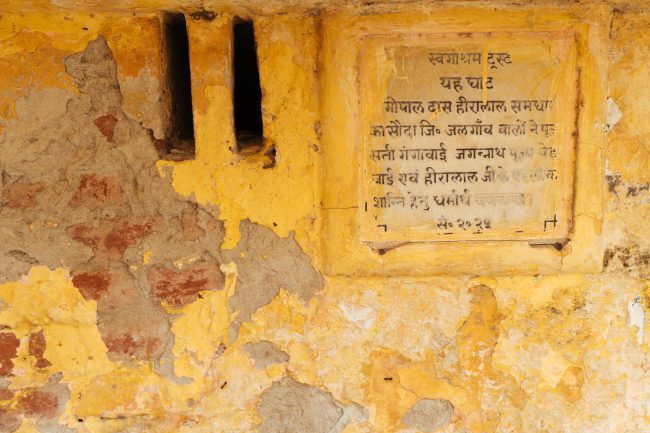 स्वर्गाश्रम ट्रस्ट
यह घाट
गोपाल दास हीरालाल
कासौदा जि॰ जलगाँव वालों ने
सती गंगावाई जगन्नाथ
वाई एवं हीरालाल जी के
शान्ति हेतु धर्मार्थ
सं॰ २०२५